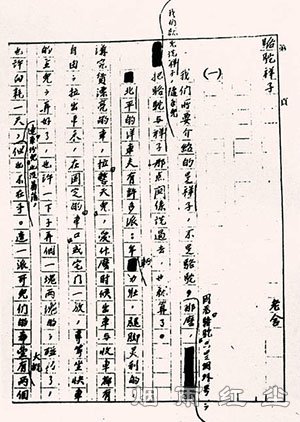 駱駝祥子 老舍
(一)
我們所要介紹的是祥子，不是駱駝，
因為「駱駝」只是個外號；
那麼，
我們就先說祥子，隨手兒
把駱駝與祥子那点關係說過去，也就算了。
北平的洋車夫有許多派：年輕力壯，腿脚灵利的，
講究賃漂亮的車，拉「整天兒」，愛什麼時候出車与收車都有
自由；拉出車來，在固定的「車口」或宅門一放，專等坐快車
的主兒；弄好了，也許一下子弄個一塊兩塊的；碰巧了，
也許白耗一天，
連「車份兒」也沒着落，
但也不在乎。這一派哥兒們的希望大概有兩個
烟雨红尘